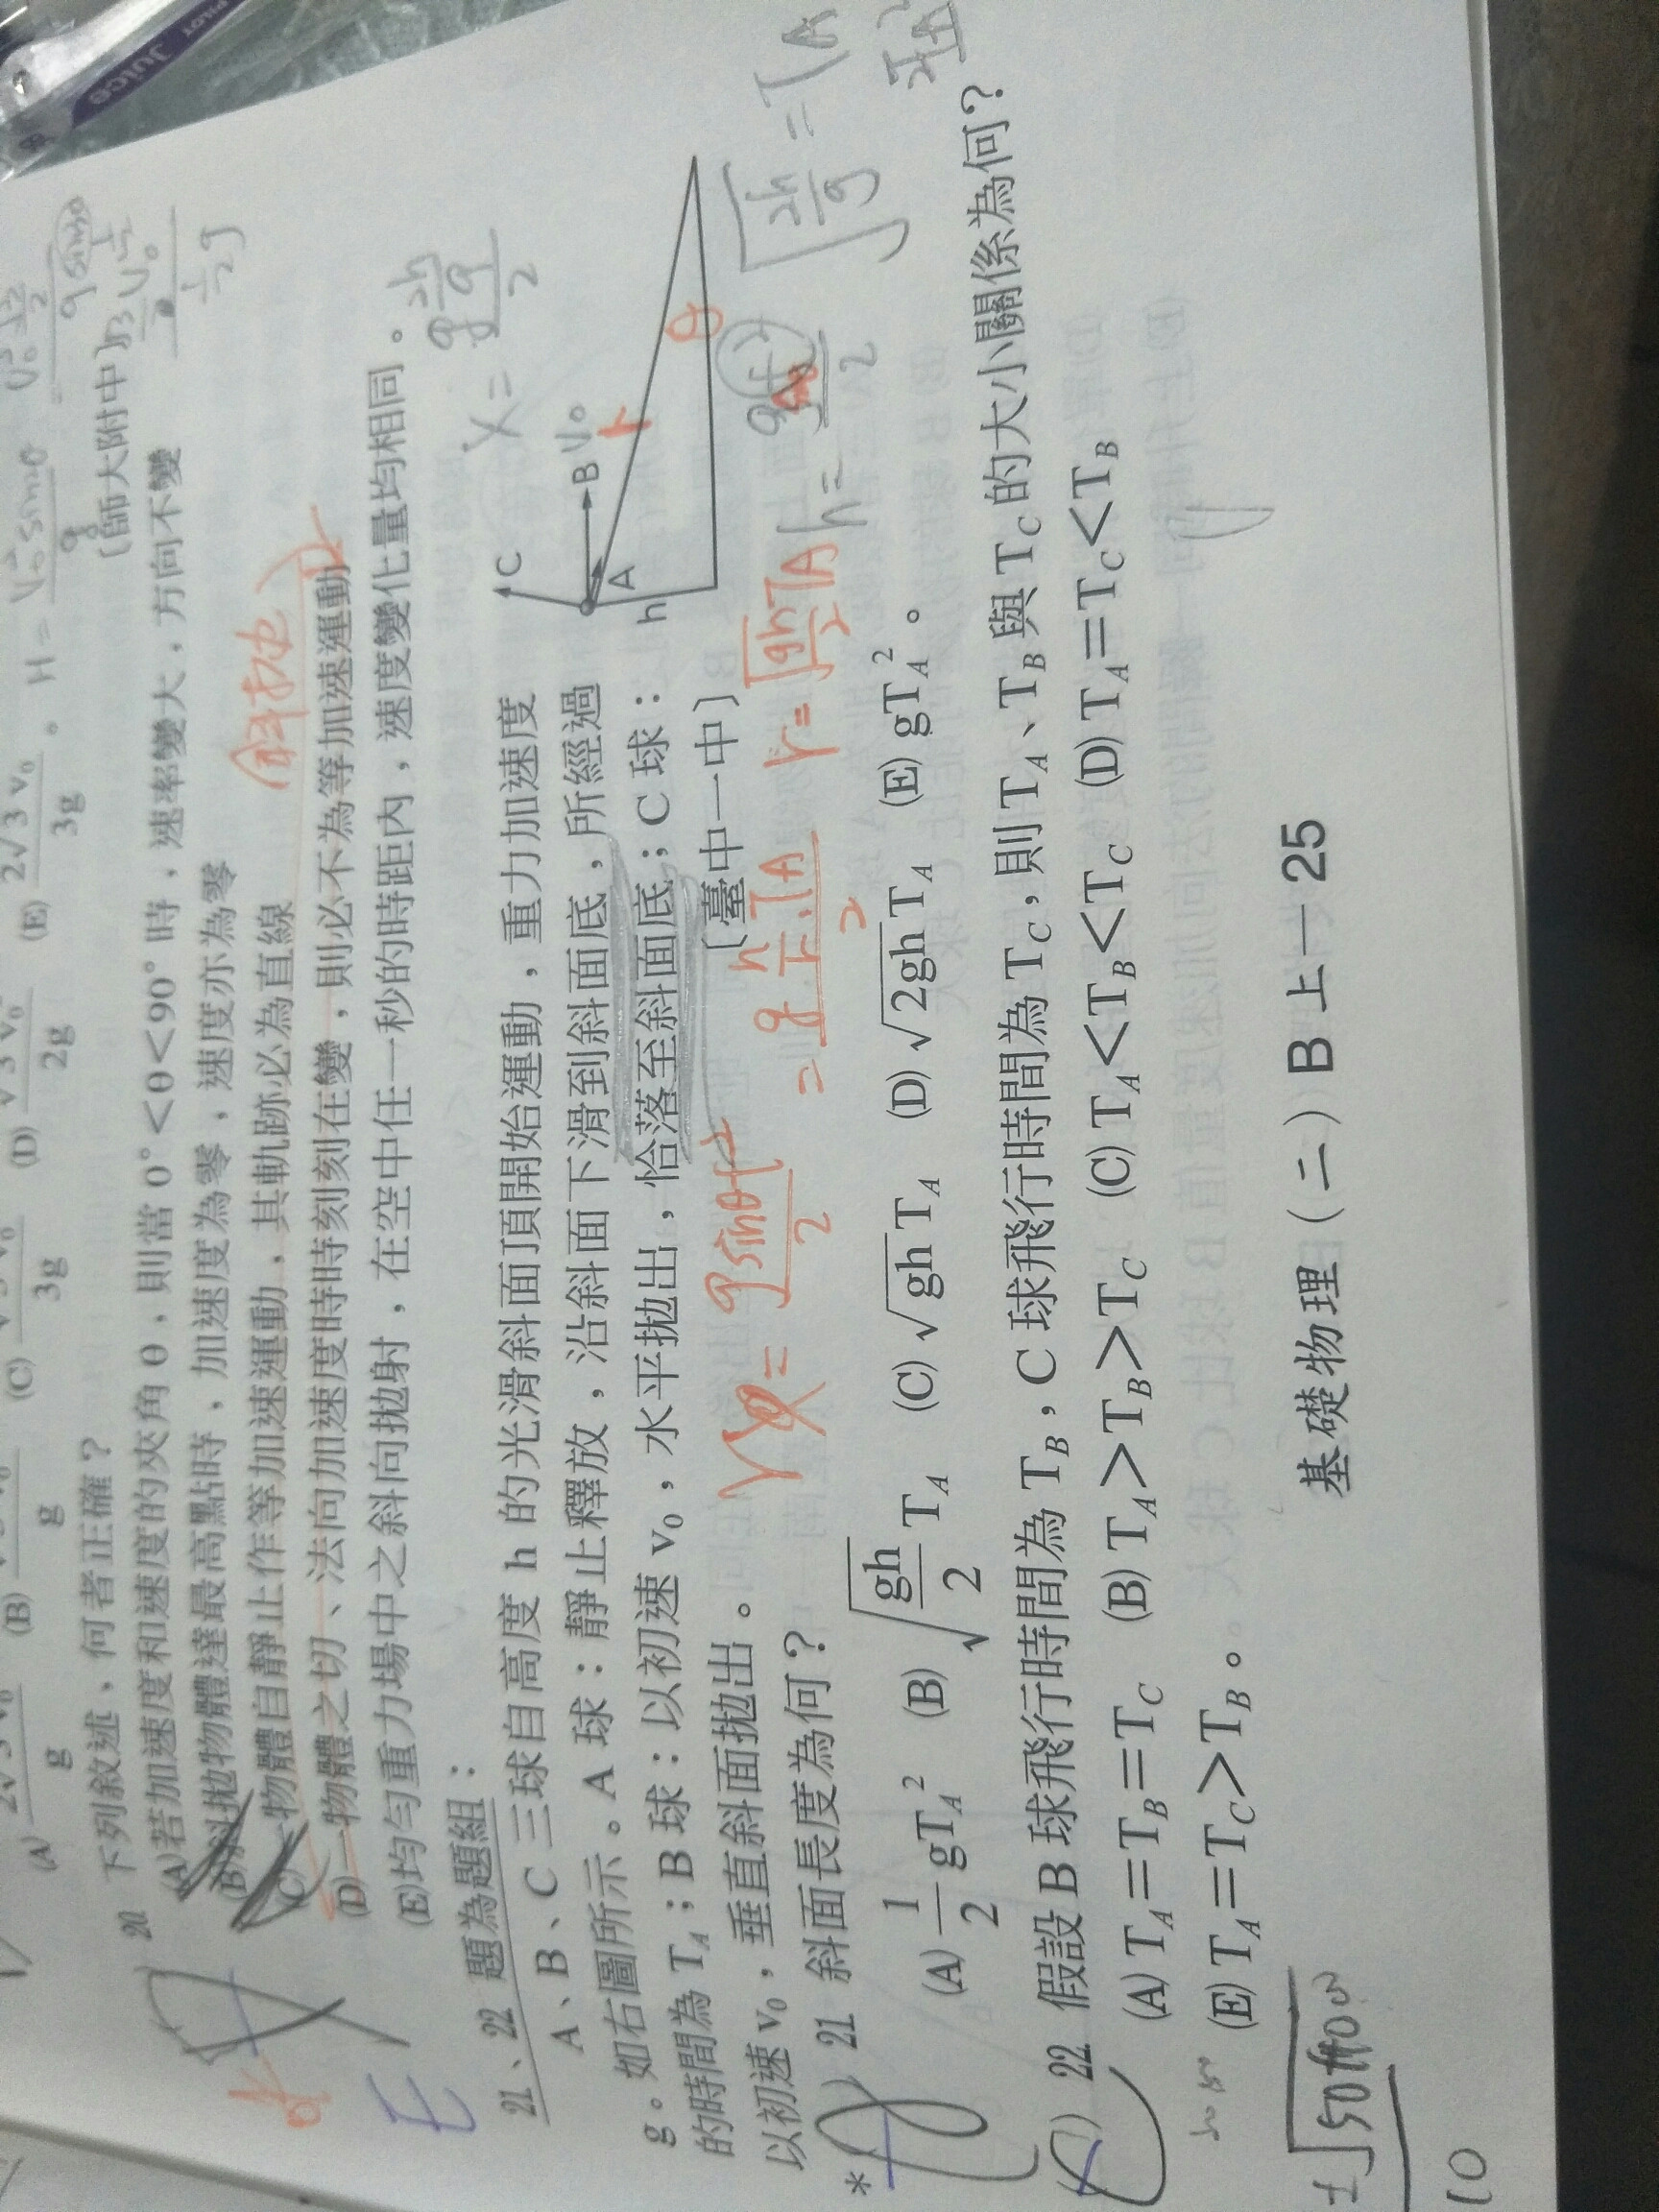 PILOT Juice
(A) 2√3 v₀/g (B) (C) 3g (D) √3 v₀/2g (E) 2√3 v₀/3g 。 H = V₀² sinθ/g
〔師大附中〕
20 下列敘述，何者正確？
(A)若加速度和速度的夾角 θ，則當 0°<θ<90° 時，速率變大，方向不變
(B)斜拋物體達最高點時，加速度為零，速度亦為零
(C)一物體自靜止作等加速運動，其軌跡必為直線
(斜拋)
(D)一物體之切、法向加速度時時刻刻在變，則必不為等加速運動
(E)均勻重力場中之斜向拋射，在空中任一秒的時距內，速度變化量均相同。
E
21、22 題為題組：
A、B、C 三球自高度 h 的光滑斜面頂開始運動，重力加速度
g。如右圖所示。A 球：靜止釋放，沿斜面下滑到斜面底，所經過
的時間為 T_A；B 球：以初速 v₀，水平拋出，恰落至斜面底；C 球：
以初速 v₀，垂直斜面拋出。〔臺中一中〕
C
B V₀
A
h
r
θ
*( ) 21 斜面長度為何？
= g·h/r·T_A/2
r = √(gh/2) T_A
√(2h/g)
(A) 1/2 gT_A² (B) √(gh/2) T_A (C) √gh T_A (D) √2gh T_A (E) gT_A²。
( ) 22 假設 B 球飛行時間為 T_B，C 球飛行時間為 T_C，則 T_A、T_B 與 T_C 的大小關係為何？
(A) T_A＝T_B＝T_C (B) T_A＞T_B＞T_C (C) T_A＜T_B＜T_C (D) T_A＝T_C＜T_B
(E) T_A＝T_C＞T_B。
基礎物理（二）B上－25
10